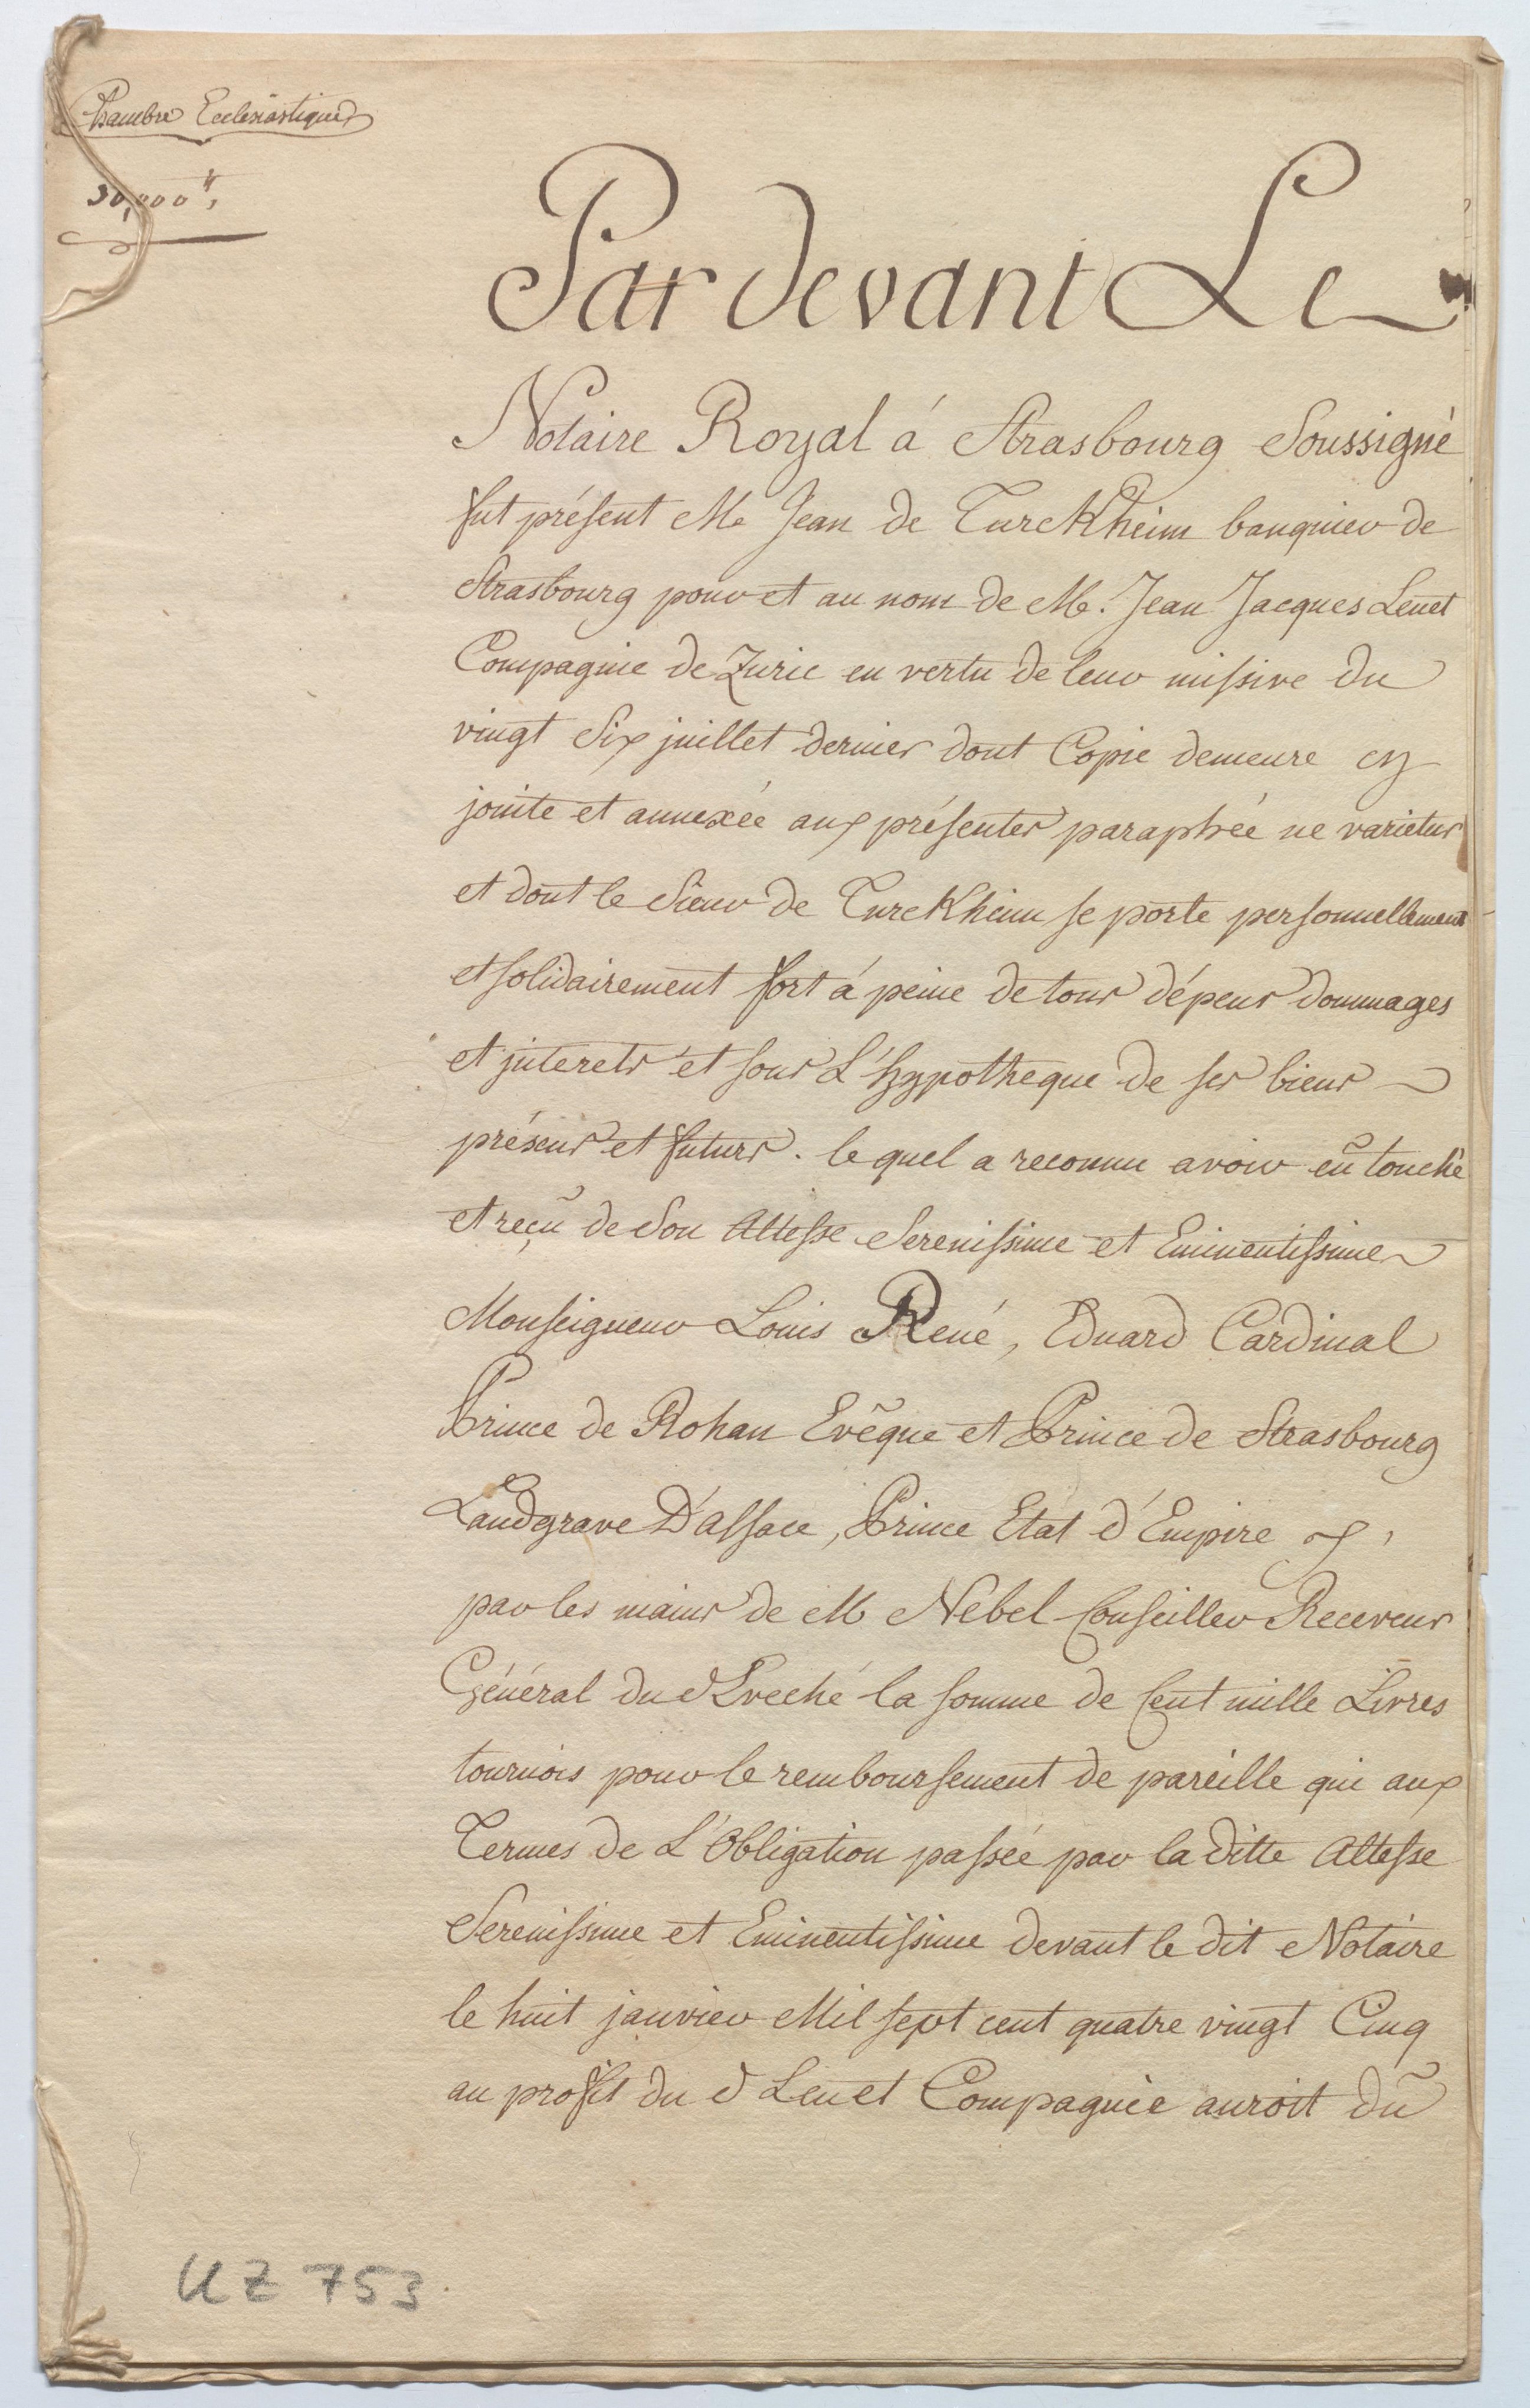 Chambre Ecclesiastique
30,000 ₶,
Par devant Le
Notaire Royal á Strasbourg Soussigné
fut présent Mr Jean de Turckheim banquier de
Strasbourg pour et au nom de Mr. Jean Jacques Leu et
Compagnie de Zuric en vertu de leur missive du
vingt Six juillet dernier dont Copie demeure cy
jointe et annexée aux présentes paraphée ne varietur
et dont le Sieur de Turckheim se porte personnellement
et solidairement fort á peine de tous dépens dommages
et interets et sous L'hypotheque de ses biens
présens et futurs. le quel a reconnu avoir eû touché
et reçû de Son Altesse Serenissime et Eminentissime
Monseigneur Louis René, Eduard Cardinal
Prince de Rohan Evêque et Prince de Strasbourg
Landgrave D'alsace, Prince Etat d'Empire &,
par les mains de M Nebel Conseiller Receveur
Général du d Eveché la somme de Cent mille Livres
tournois pour le remboursement de pareille qui aux
Termes de L'Obligation passée par la ditte Altesse
Serenissime et Eminentissime devant le dit Notaire
le huit janvier Mil sept cent quatre vingt Cinq
au profit du d Leu et Compagnie auroit dû
UZ 753.